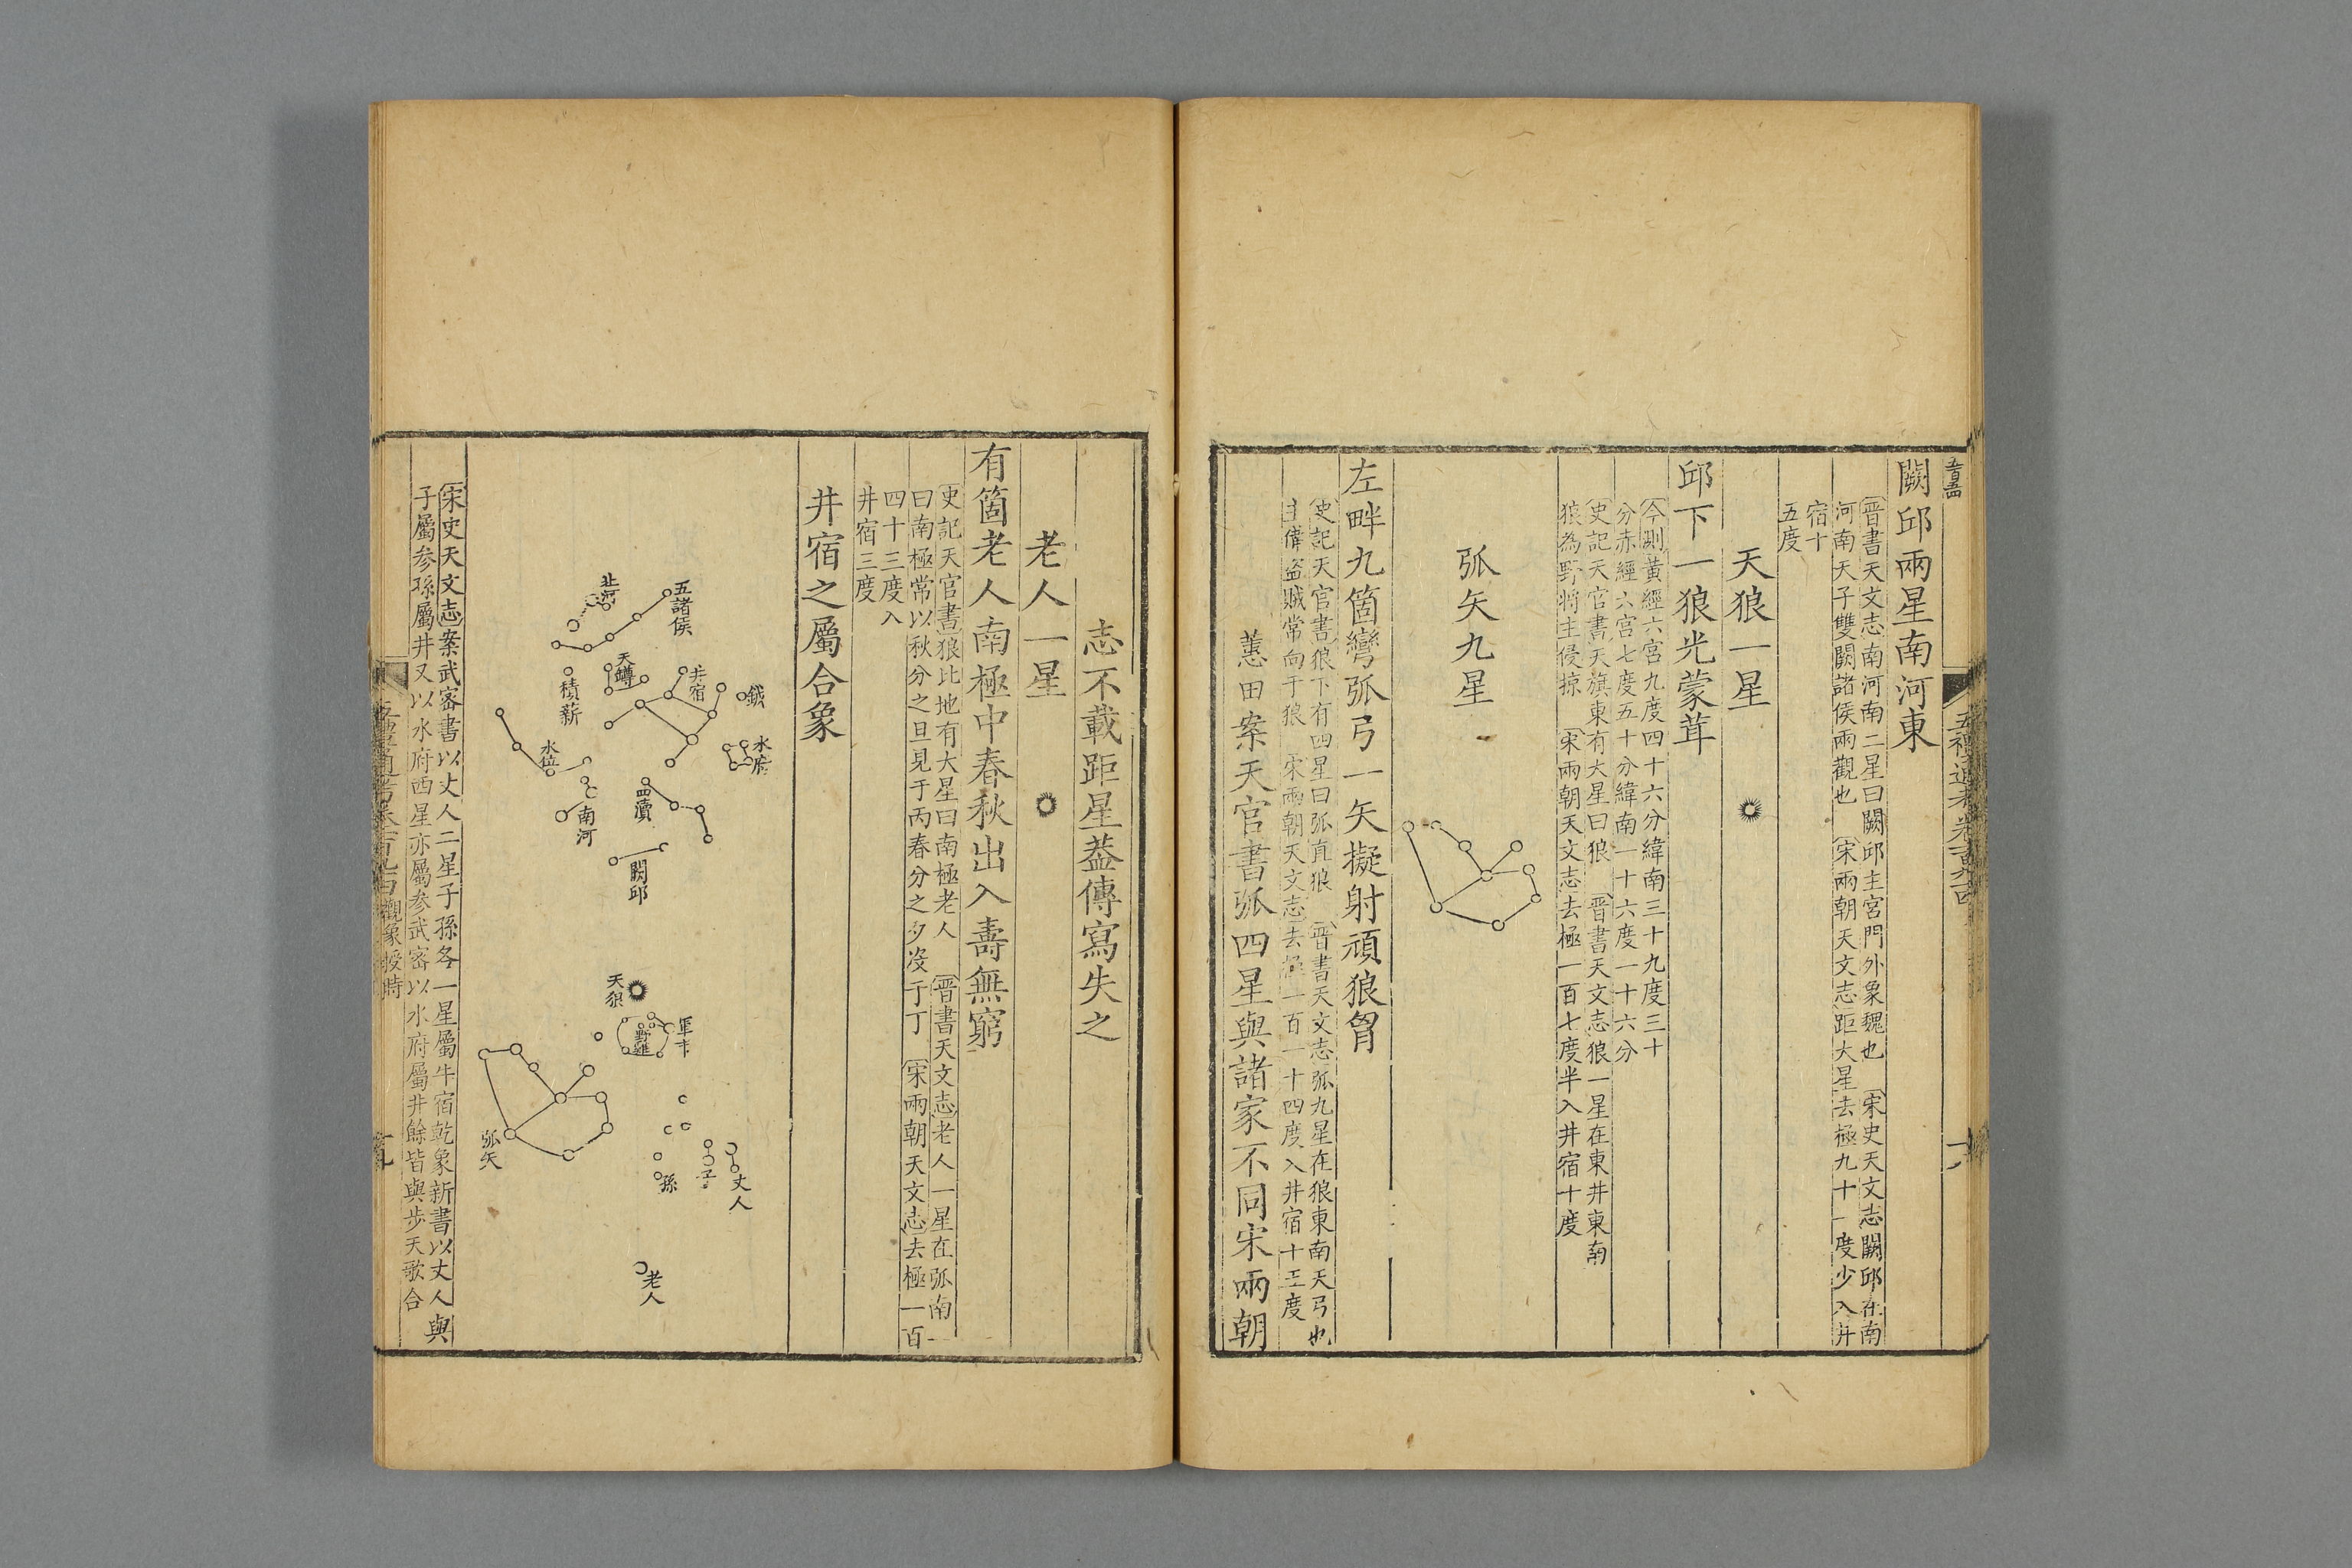 闕邱兩星南河東
晉書天文志南河南二星曰闕邱主宮門外象魏也 宋史天文志闕邱在南
河南天子雙闕諸侯兩觀也 宋兩朝天文志距大星去極九十一度少入井
宿十
五度
天狼一星
邱下一狼光蒙茸
今測黃經六宮九度四十六分緯南三十九度三十
分赤經六宮七度五十分緯南一十六度一十六分
史記天官書天旗東有大星曰狼 晉書天文志狼一星在東井東南
狼為野將主侵掠 宋兩朝天文志去極一百七度半入井宿十度
弧矢九星
左畔九箇彎弧弓一矢擬射頑狼胷
史記天官書狼下有四星曰弧直狼 晉書天文志弧九星在狼東南天弓也
主備盜賊常向于狼 宋兩朝天文志去極一百一十四度入井宿十三度
蕙田案天官書弧四星與諸家不同宋兩朝
志不載距星葢傳寫失之
老人一星
有箇老人南極中春秋出入壽無窮
史記天官書狼比地有大星曰南極老人 晉書天文志老人一星在弧南一
曰南極常以秋分之旦見于丙春分之夕沒于丁 宋兩朝天文志去極一百
四十三度入
井宿三度
井宿之屬合象
鉞
水府
井宿
五諸侯
北河
天罇
積薪
水位
四瀆
南河
闕邱
天狼
軍市
野雞
丈人
子
孫
弧矢
老人
宋史天文志案武密書以丈人二星子孫各一星屬牛宿乾象新書以丈人與
子屬参孫屬井又以水府西星亦屬参武密以水府屬井餘皆與步天歌合
觀象授時